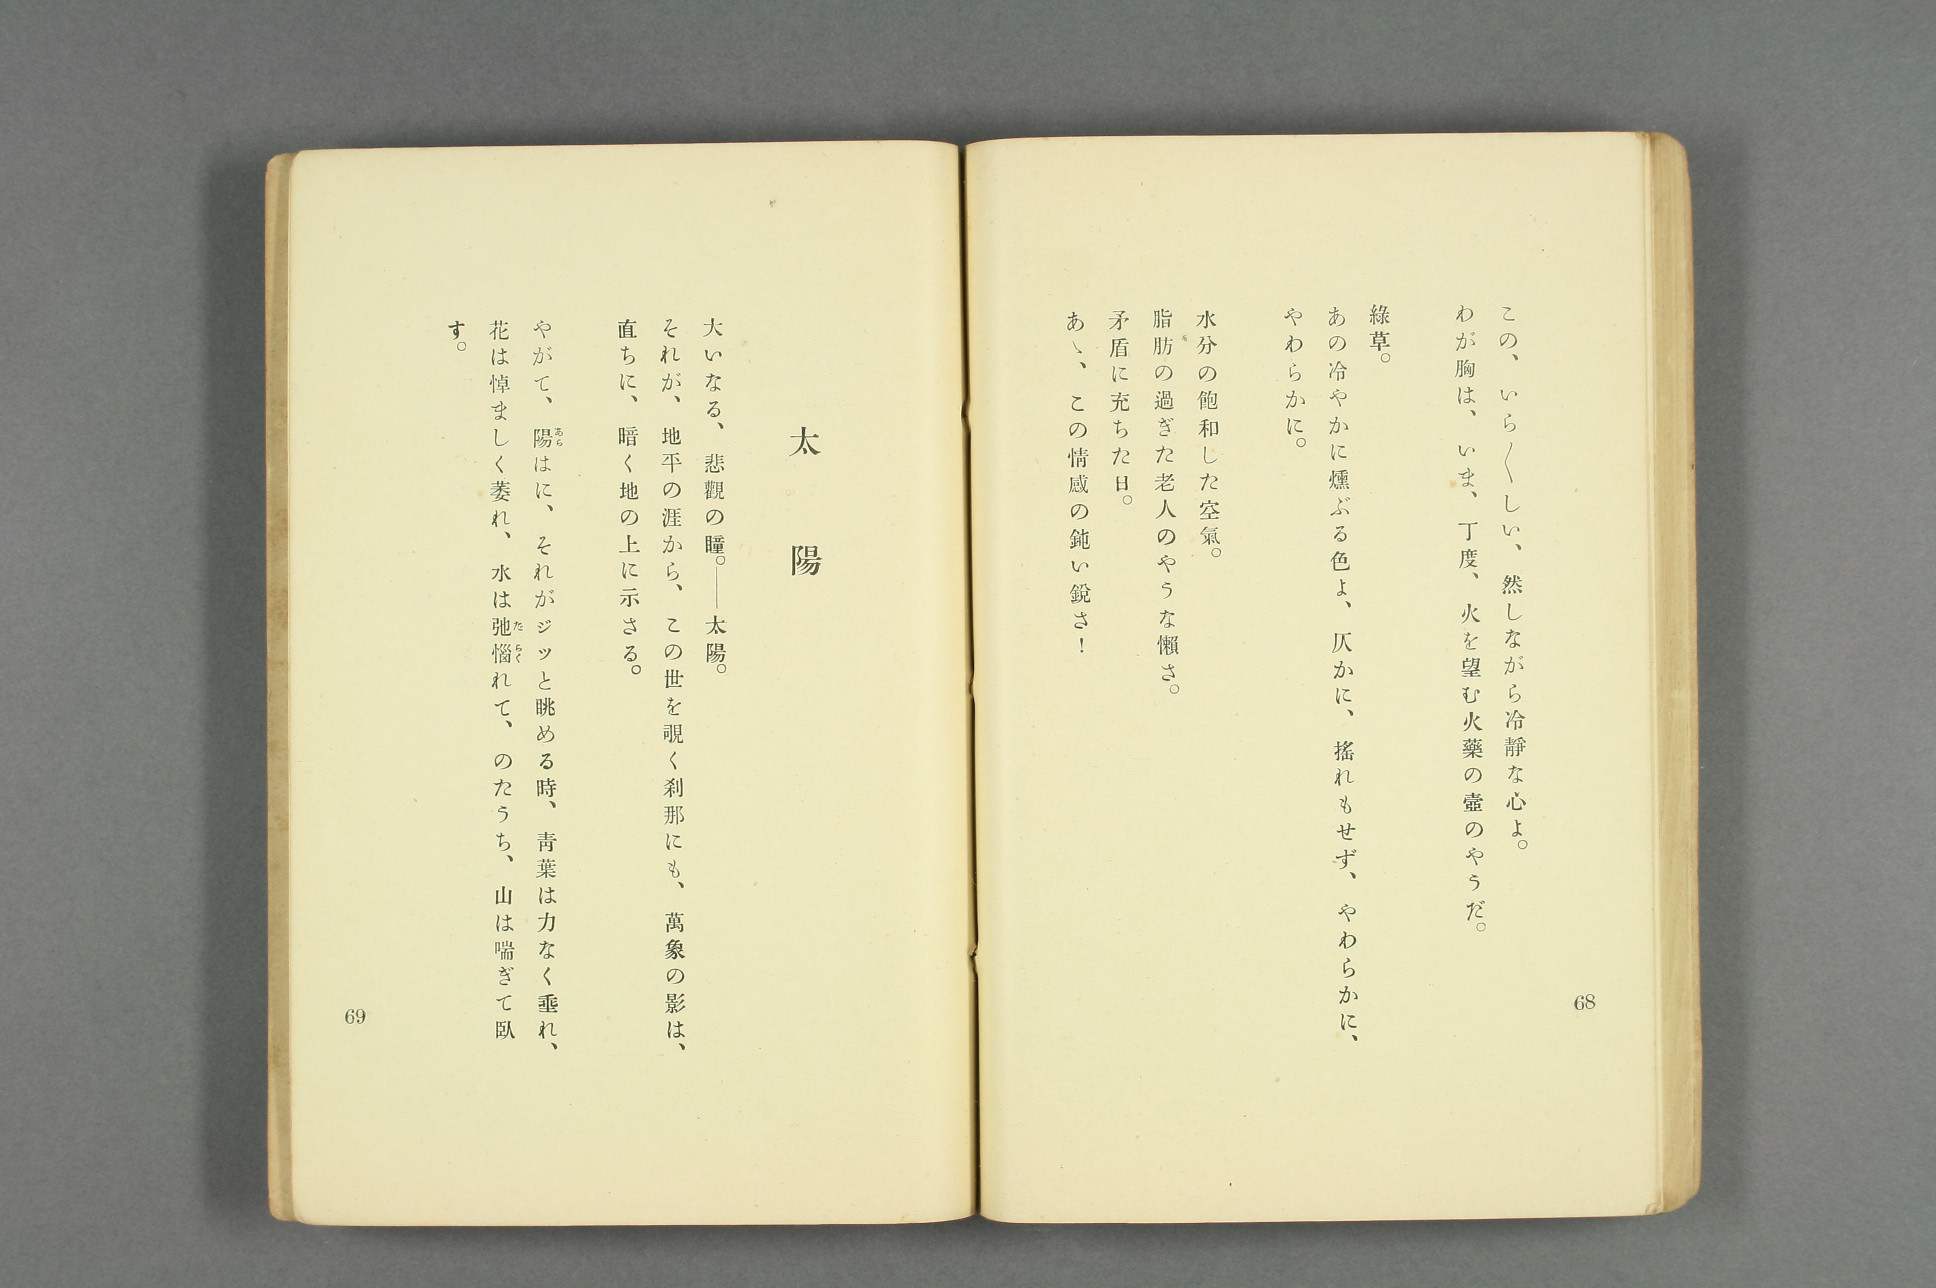 この、いら〳〵しい、然しながら冷靜な心よ。
わが胸は、いま、丁度、火を望む火藥の壺のやうだ。
綠草。
あの冷やかに燻ぶる色よ、仄かに、搖れもせず、やわらかに、
やわらかに。
水分の飽和した空氣。
脂肪の過ぎた老人のやうな懶さ。
矛盾に充ちた日。
あゝ、この情感の鈍い銳さ!
68
太陽
大いなる、悲觀の瞳。——太陽。
それが、地平の涯から、この世を覗く刹那にも、萬象の影は、
直ちに、暗く地の上に示さる。
やがて、陽はに、それがジッと眺める時、靑葉は力なく垂れ、
あら
花は悼ましく萎れ、水は弛惱れて、のたうち、山は喘ぎて臥
たらく
す。
69